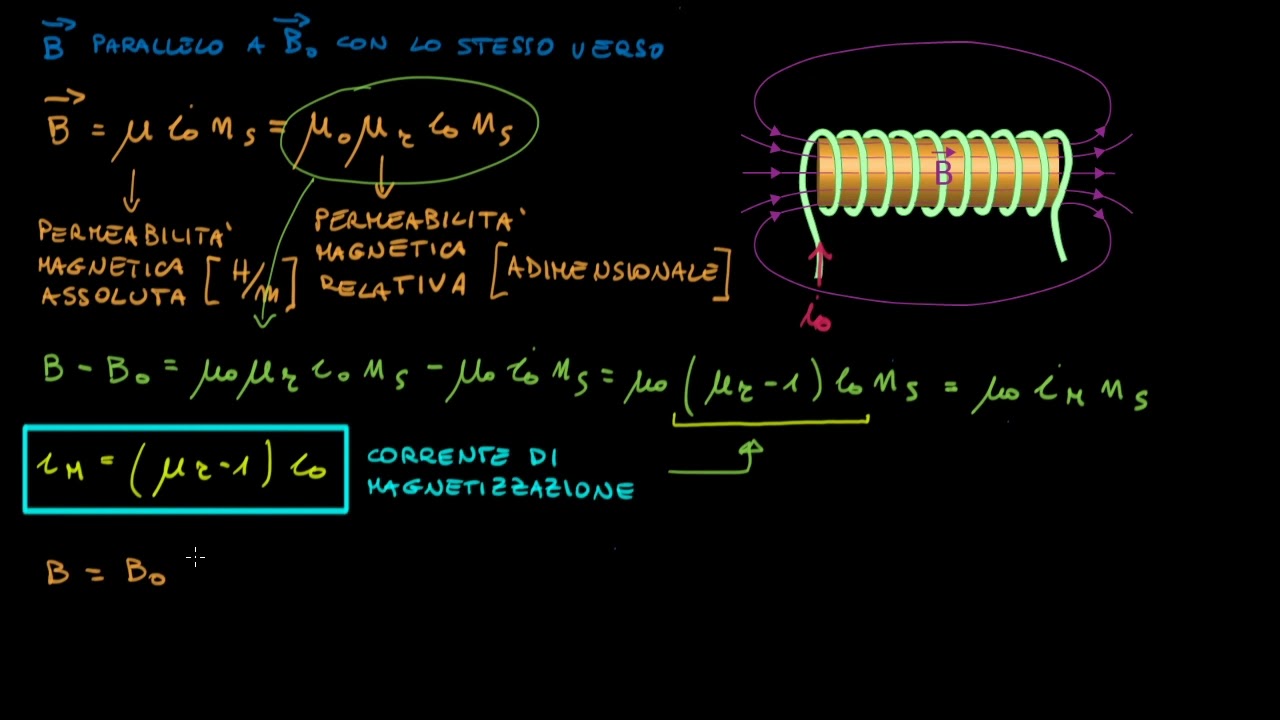 B⃗ PARALLELO A B⃗₀ CON LO STESSO VERSO
B⃗ = μ i₀ n_S = μ₀ μ_r i₀ n_S
PERMEABILITA'
MAGNETICA
ASSOLUTA [H/m]
PERMEABILITA'
MAGNETICA
RELATIVA [ADIMENSIONALE]
B⃗
i₀
B - B₀ = μ₀ μ_r i₀ n_S - μ₀ i₀ n_S = μ₀ (μ_r - 1) i₀ n_S = μ₀ i_M n_S
i_M = (μ_r - 1) i₀
CORRENTE DI
MAGNETIZZAZIONE
B = B₀